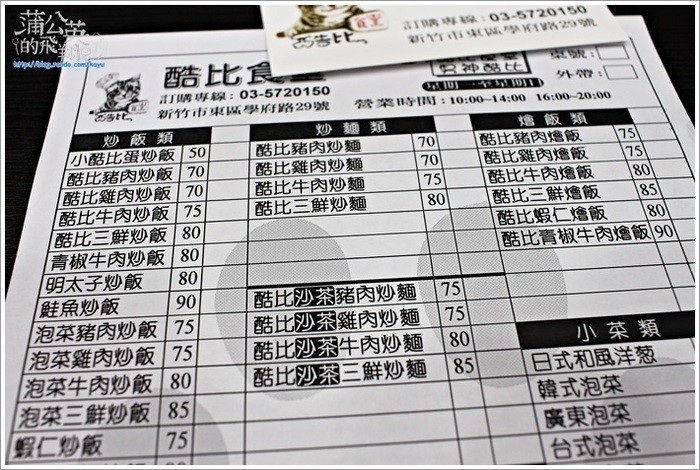 蒲公英
的飛翔
http://blog.roodo.com/kayu
訂購專線：03-5720150
新竹市東區學府路29號
酷比食堂
訂購專線：03-5720150
新竹市東區學府路29號
桌號：
外帶：
星期一至星期日
營業時間：10:00~14:00 16:00~20:00
炒飯類
小酷比蛋炒飯 50
酷比豬肉炒飯 70
酷比雞肉炒飯 70
酷比牛肉炒飯 75
酷比三鮮炒飯 80
青椒牛肉炒飯 80
明太子炒飯 80
鮭魚炒飯 90
泡菜豬肉炒飯 75
泡菜雞肉炒飯 75
泡菜牛肉炒飯 80
泡菜三鮮炒飯 85
蝦仁炒飯 75
炒麵類
酷比豬肉炒麵 70
酷比雞肉炒麵 70
酷比牛肉炒麵 75
酷比三鮮炒麵 80
酷比沙茶豬肉炒麵 75
酷比沙茶雞肉炒麵 75
酷比沙茶牛肉炒麵 80
酷比沙茶三鮮炒麵 85
燴飯類
酷比豬肉燴飯 75
酷比雞肉燴飯 75
酷比牛肉燴飯 80
酷比三鮮燴飯 85
酷比蝦仁燴飯 80
酷比青椒牛肉燴飯 90
小菜類
日式和風洋葱
韓式泡菜
廣東泡菜
台式泡菜